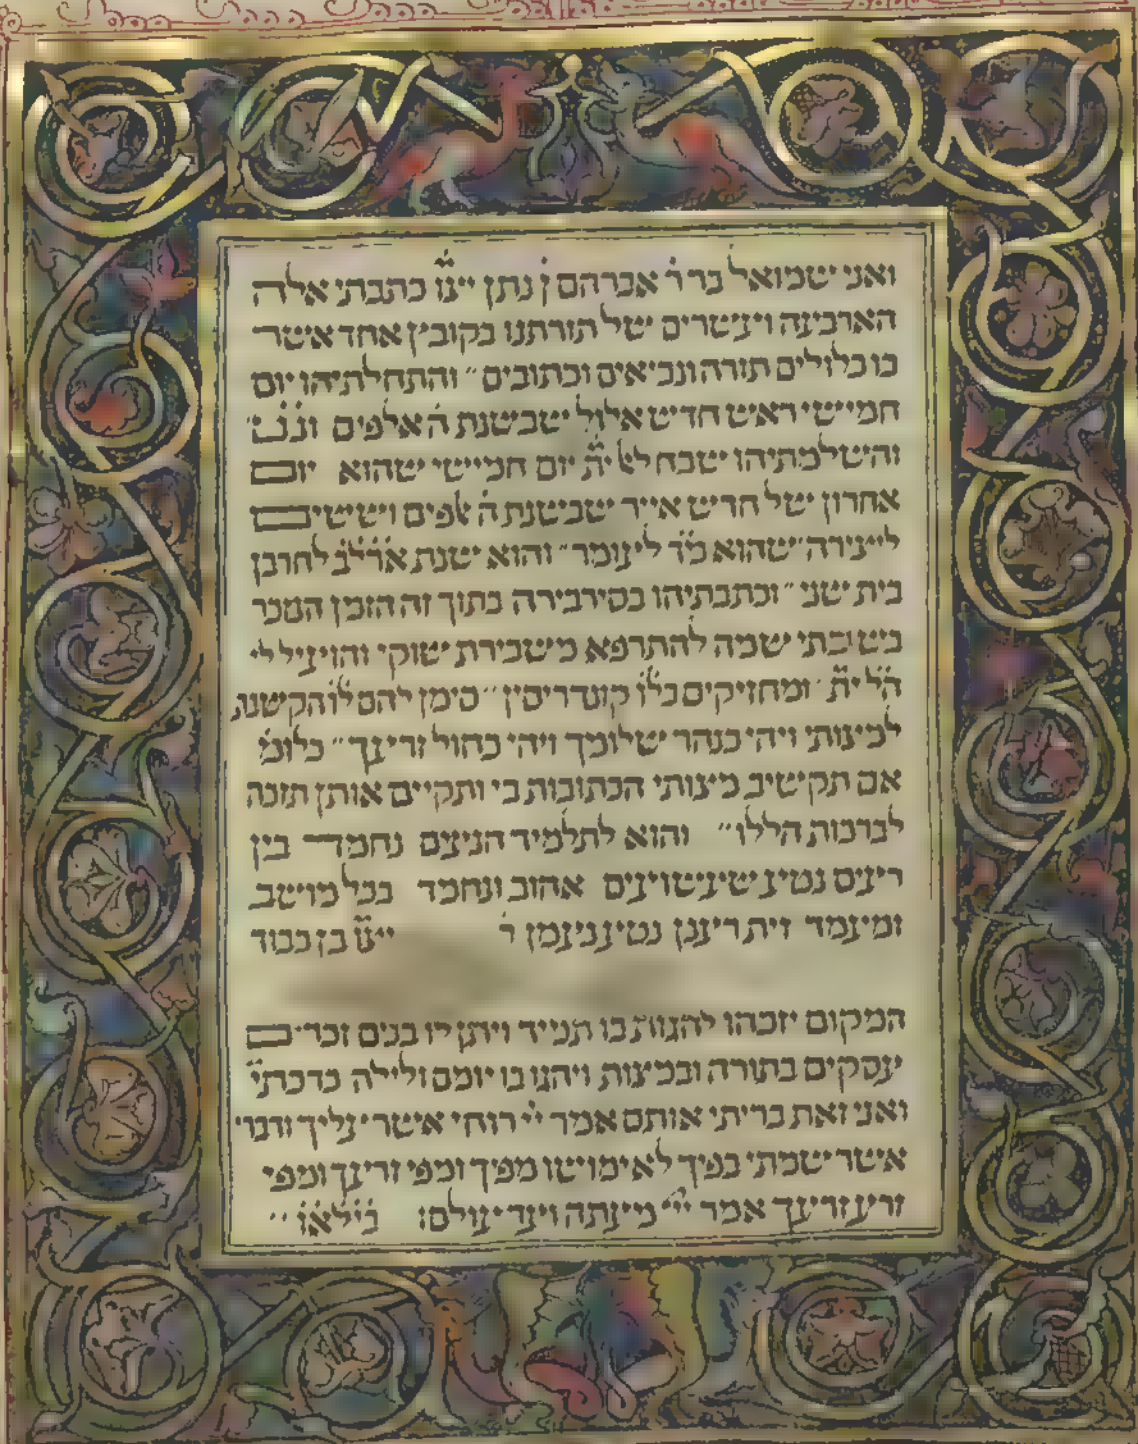 ואני שמואל בר ר׳ אברהם ן׳ נתן יינו כתבתי אלה
הארבעה ועשרים של תורתנו בקובץ אחד אשר
בו כלולים תורה ונביאים וכתובים״ והתחלתיהו יום
חמישי ראש חדש אלול שבשנת ה׳ אלפים
והשלמתיהו שבח לאל ית׳ יום חמישי שהוא יום
אחרון של חדש אייר שבשנת ה׳ אלפים וששים
ליצירה שהוא מ״ד לעומר״ והוא שנת אר״לב לחרבן
בית שני״ וכתבתיהו בסירבירה בתוך זה הזמן הנזכר
בשיבתי שמה להתרפא משבירת שוקי והועיל לי
האל ית׳ ומחזיקים קונדריסין״ סימן להם לוא הקשבת
למצותי ויהי כנהר שלומך ויהי כחול זרעך״ כלומ׳
אם תקשיב מצותי הכתובות בי ותקיים אותן תזכה
לברכות הללו״ והוא לתלמיד הנעים נחמד בין
ריעים נטיע שעשועים אהוב ונחמד בכל מושב
ומעמד זית רענן נטע נעמן ר׳ ייעו בן כבוד
המקום יזכהו להגות בו תמיד ויתן לו בנים זכרים
עסקים בתורה ובמצות ויהגו בו יומם ולילה כדכתי׳
ואני זאת בריתי אותם אמר יי׳ רוחי אשר עליך ודברי
אשר שמתי בפיך לא ימושו מפיך ומפי זרעך ומפי
זרע זרעך אמר יי׳ מעתה ועד עולם׃